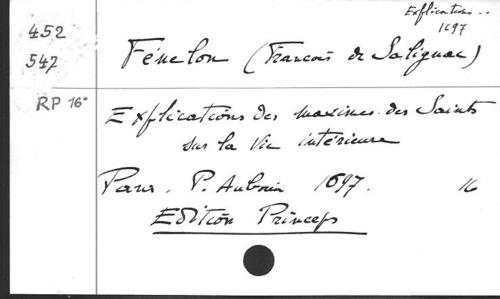 Explications..
1697
452
547
Fénelon (Francois de Salignac)
RP 16°
Explications des maximes des Saints
sur la vie intérieure
Paris. P. Aubouin 1697. 16
Edition Princeps